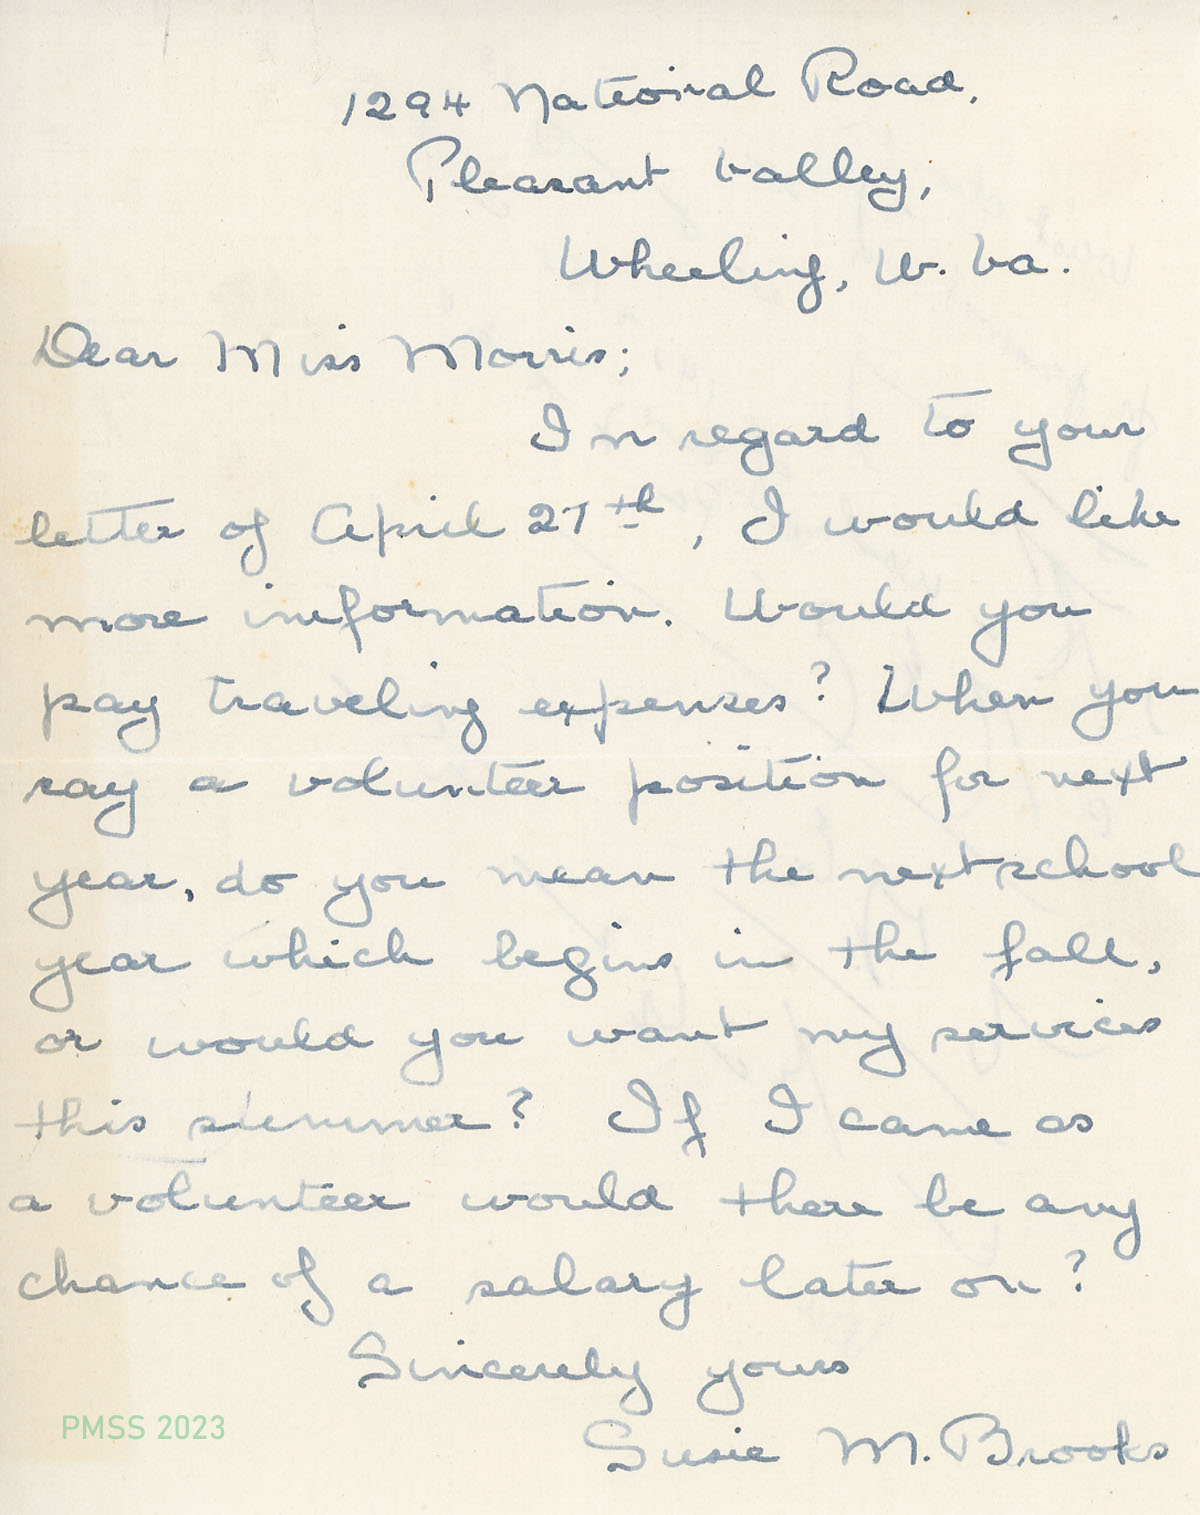 1294 National Road,
Pleasant Valley,
Wheeling, W. Va.
Dear Miss Morris;
In regard to your
letter of April 27th, I would like
more information. Would you
pay traveling expenses? When you
say a volunteer position for next
year, do you mean the next school
year which begins in the fall,
or would you want my services
this summer? If I came as
a volunteer would there be any
chance of a salary later on?
Sincerely yours
Susie M. Brooks
PMSS 2023